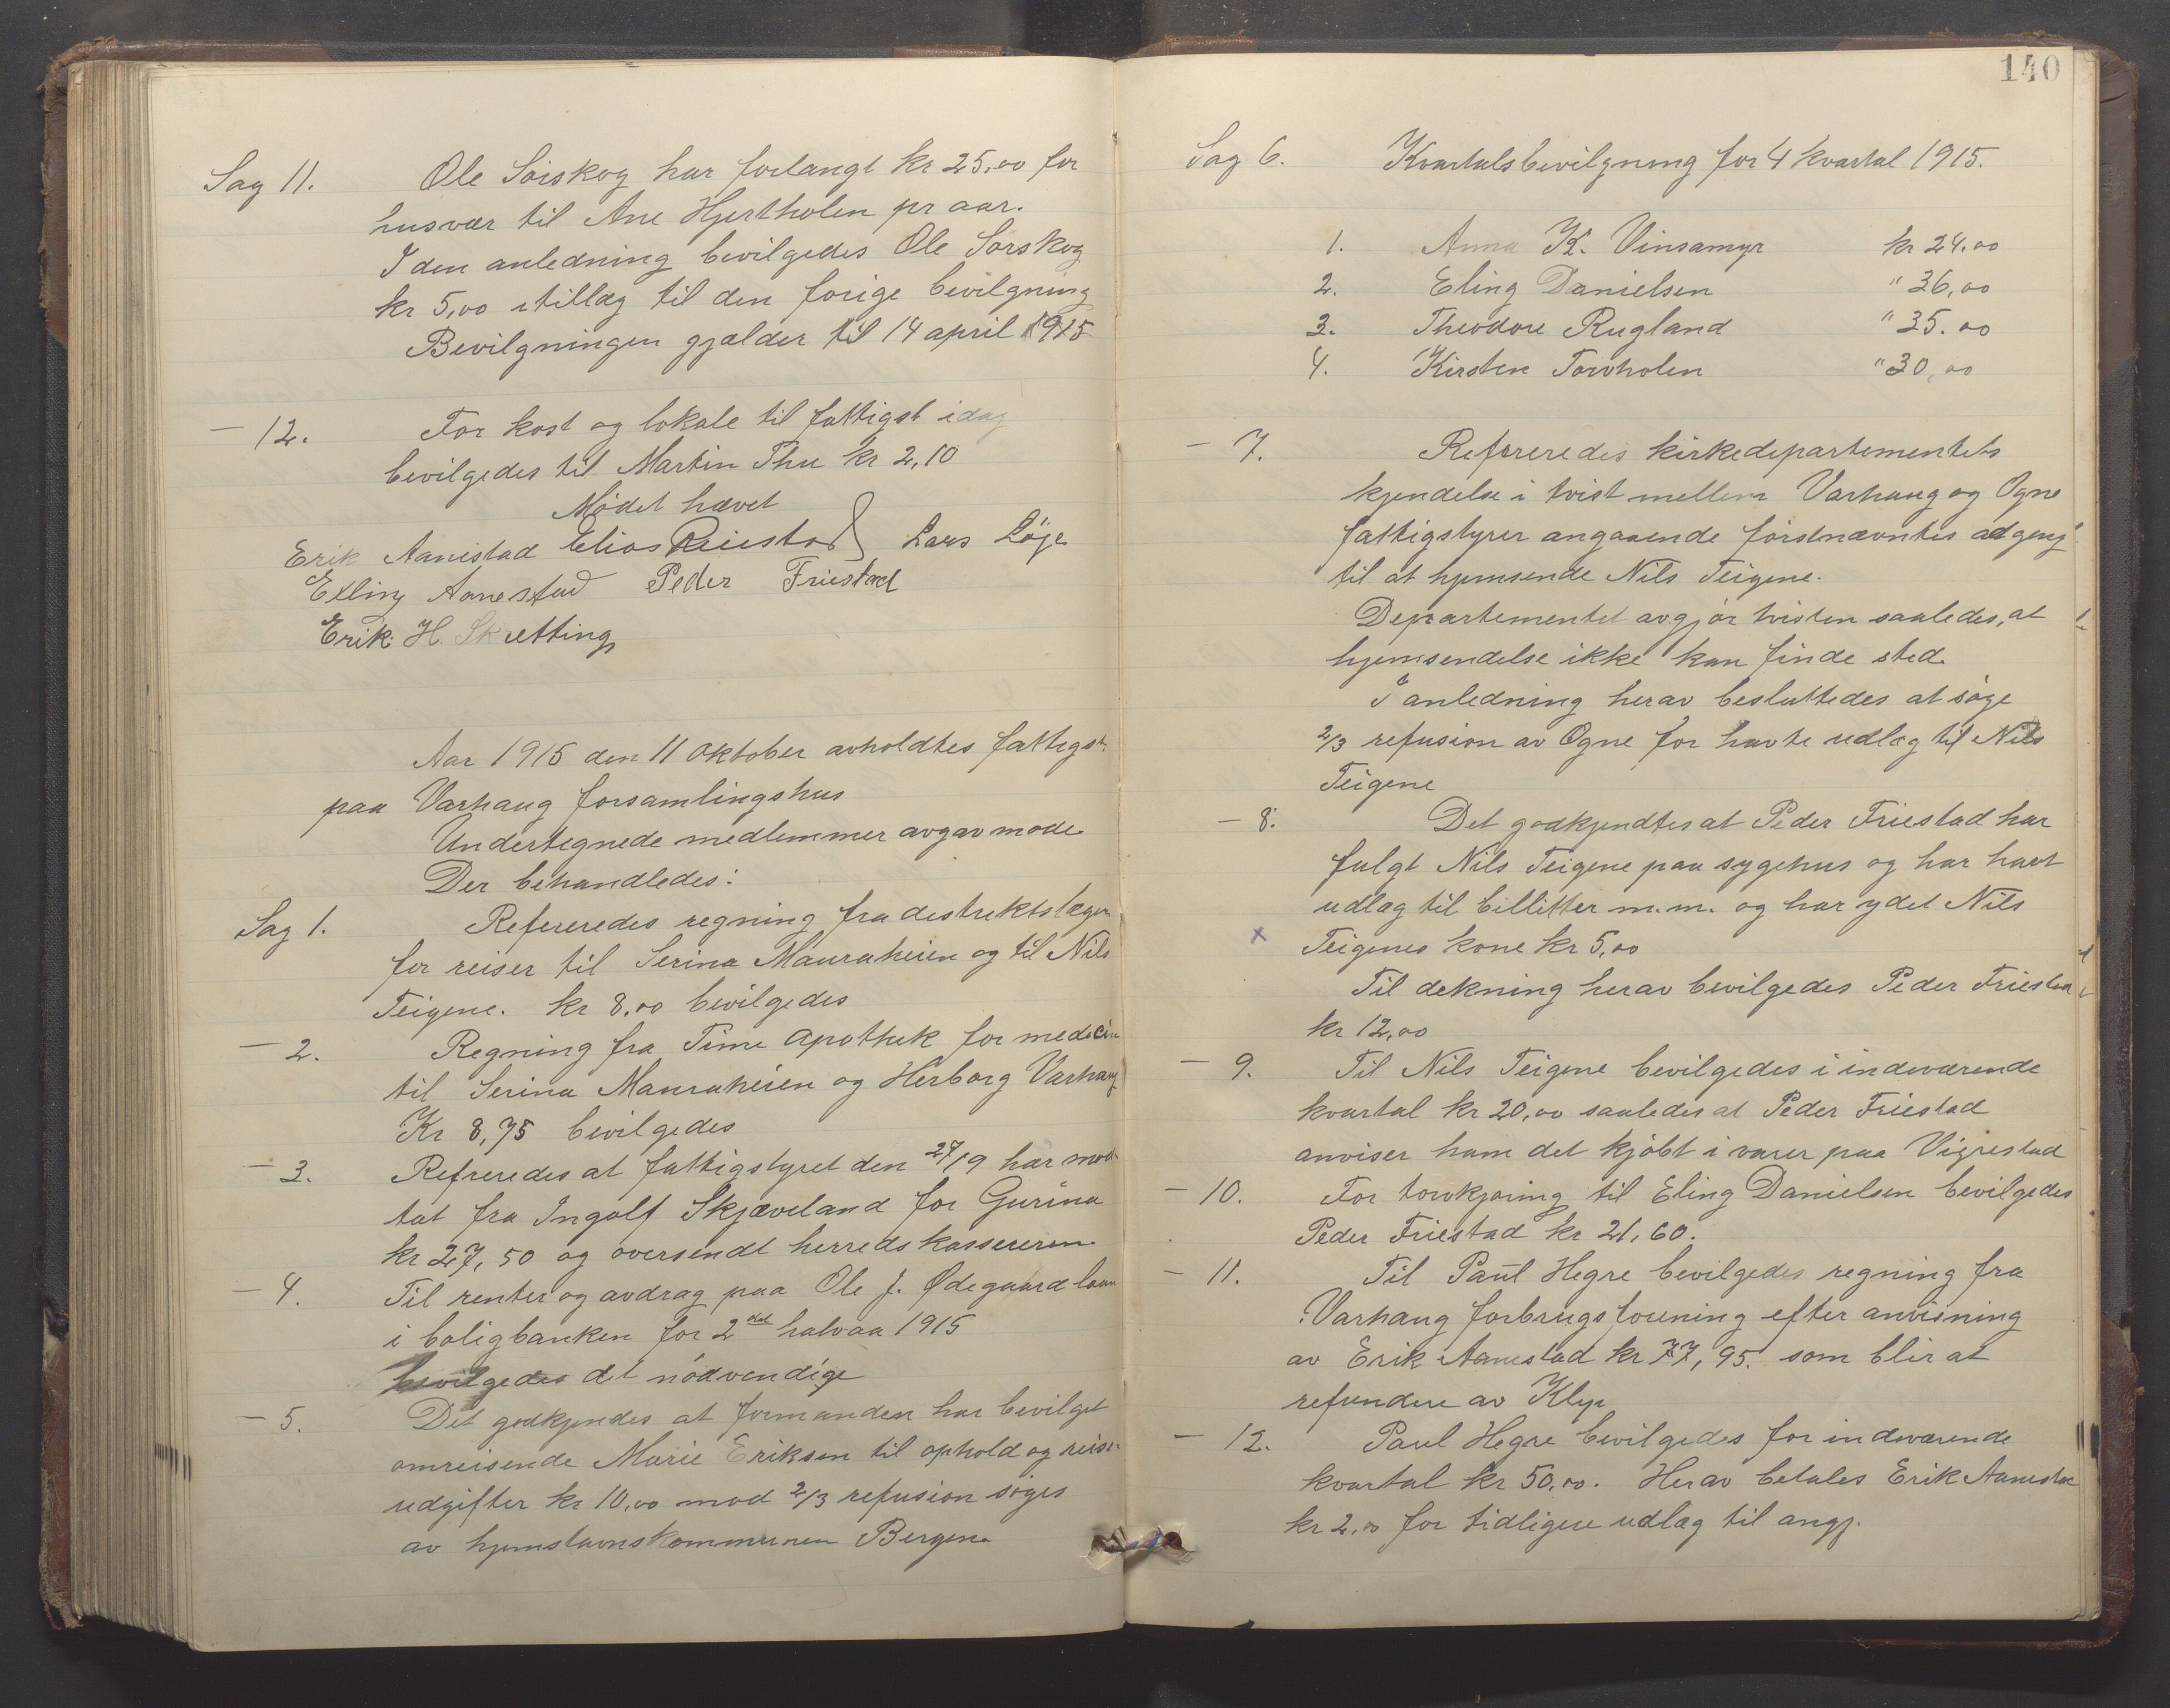 Sag 11. Ole Sörskog har forlangt kr 25,00 for
husvær til Ane Hjertholen pr aar.
I den anledning bevilgedes Ole Sørskog
kr 5,00 i tillæg til den forige bevilgning
Bevilgningen gjælder til 14 april 1915
— 12. For kost og lokale til fattigst idag
bevilgedes til Martin Thu kr 2,10
Mødet hævet
Erik Aanestad Elias Reiestad Lars Löge
Elling Aanestad Peder Friestad
Erik H. Skretting
Aar 1915 den 11 oktober avholdtes fattigst.
paa Varhaug forsamlingshus
Undertegnede medlemmer avgav mode.
Der behandledes:
Sag 1. Refereredes regning fra destriktslægen
for reiser til Serina Mauraheien og til Nils
Teigene. kr 8,00 bevilgedes
— 2. Regning fra Time apothek for medecin
til Serina Mauraheien og Herborg Varhaug
Kr 8,75 bevilgedes
— 3. Refreredes at fattigstyret den 27/9 har mod
tat fra Ingolf Skjæveland for Gurina
kr 27,50 og oversendt herredskassereren
— 4. Til renter og avdrag paa Ole J. Ødegaard laan
i boligbanken for 2det halvaa 1915
bevilgedes det nödvendige
— 5. Det godkjendes at formanden har bevilget
omreisende Marie Eriksen til ophold og reise
udgifter kr 10,00 mod 2/3 refusion söges
av hjemstavnskommunen Bergen.
140
Sag 6. Kvartalsbevilgning for 4 kvartal 1915.
1. Anna K. Vinsamyr kr 24.00
2. Eling Danielsen " 36,00
3. Theodore Rugland " 35.00
4. Kirsten Torvholen " 30,00
— 7. Refereredes kirkedepartementets
kjendelse i tvist mellem Varhaug og Ogne
fattigstyrer angaaende förstnævntes adgang
til at hjemsende Nils Teigene.
Departementet avgjör tvisten saaledes, at
hjemsendelse ikke kan finde sted.
I anledning herav besluttedes at söge
2/3 refusion av Ogne for havte udlæg til Nils
Teigene
— 8. Det godkjendtes at Peder Friestad har
fulgt Nils Teigene paa sygehus og har havt
udlæg til billitter m.m. og har ydet Nils
x Teigenes kone kr 5,00
Til dekning herav bevilgedes Peder Friestad
kr 12,00
— 9. Til Nils Teigene bevilgedes i indeværende
kvartal kr 20,00 saaledes at Peder Friestad
anviser ham det kjöbt i varer paa Vigrestad
— 10. For torvkjöring til Eling Danielsen bevilgedes
Peder Friestad kr 21,60.
— 11. Til Paul Hegre bevilgedes regning fra
Varhaug forbrugsforening efter anvisning
av Erik Aanestad kr 77,95. som blir at
refundere av Klep
— 12. Paul Hegre bevilgedes for indeværende
kvartal kr 50,00. Herav betales Erik Aanestad
kr 2,00 for tidligere udlæg til angj.